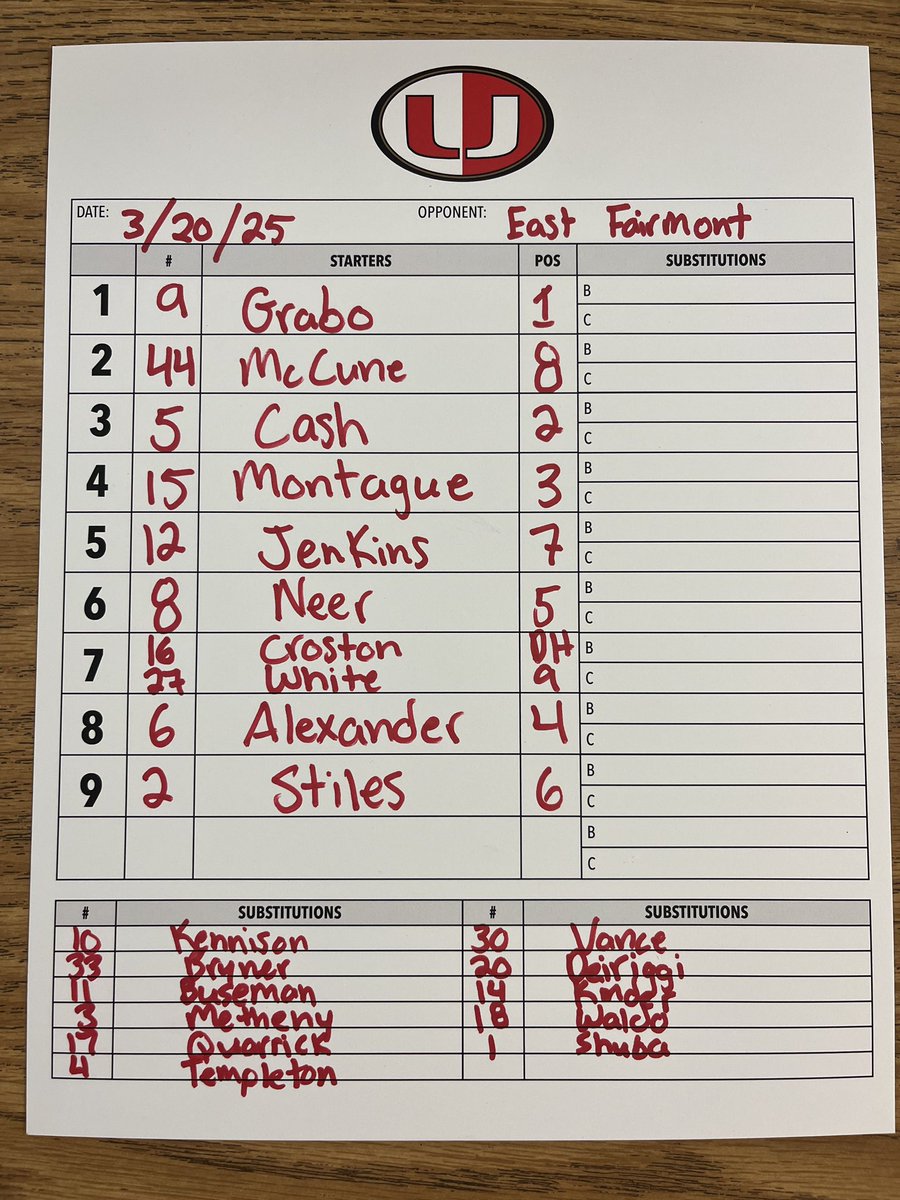 U
DATE: 3/20/25 OPPONENT: East Fairmont
# STARTERS POS SUBSTITUTIONS
1 9 Grabo 1 B
C
2 44 McCune 8 B
C
3 5 Cash 2 B
C
4 15 Montague 3 B
C
5 12 Jenkins 7 B
C
6 8 Neer 5 B
C
7 16 Croston DH B
27 White 9 C
8 6 Alexander 4 B
C
9 2 Stiles 6 B
C
B
C
# SUBSTITUTIONS # SUBSTITUTIONS
10 Kennison 30 Vance
33 Bryner 20 Deiriggi
11 Buseman 14
3 Metheny 18 Waldo
17 Quarrick 1 Shuba
4 Templeton